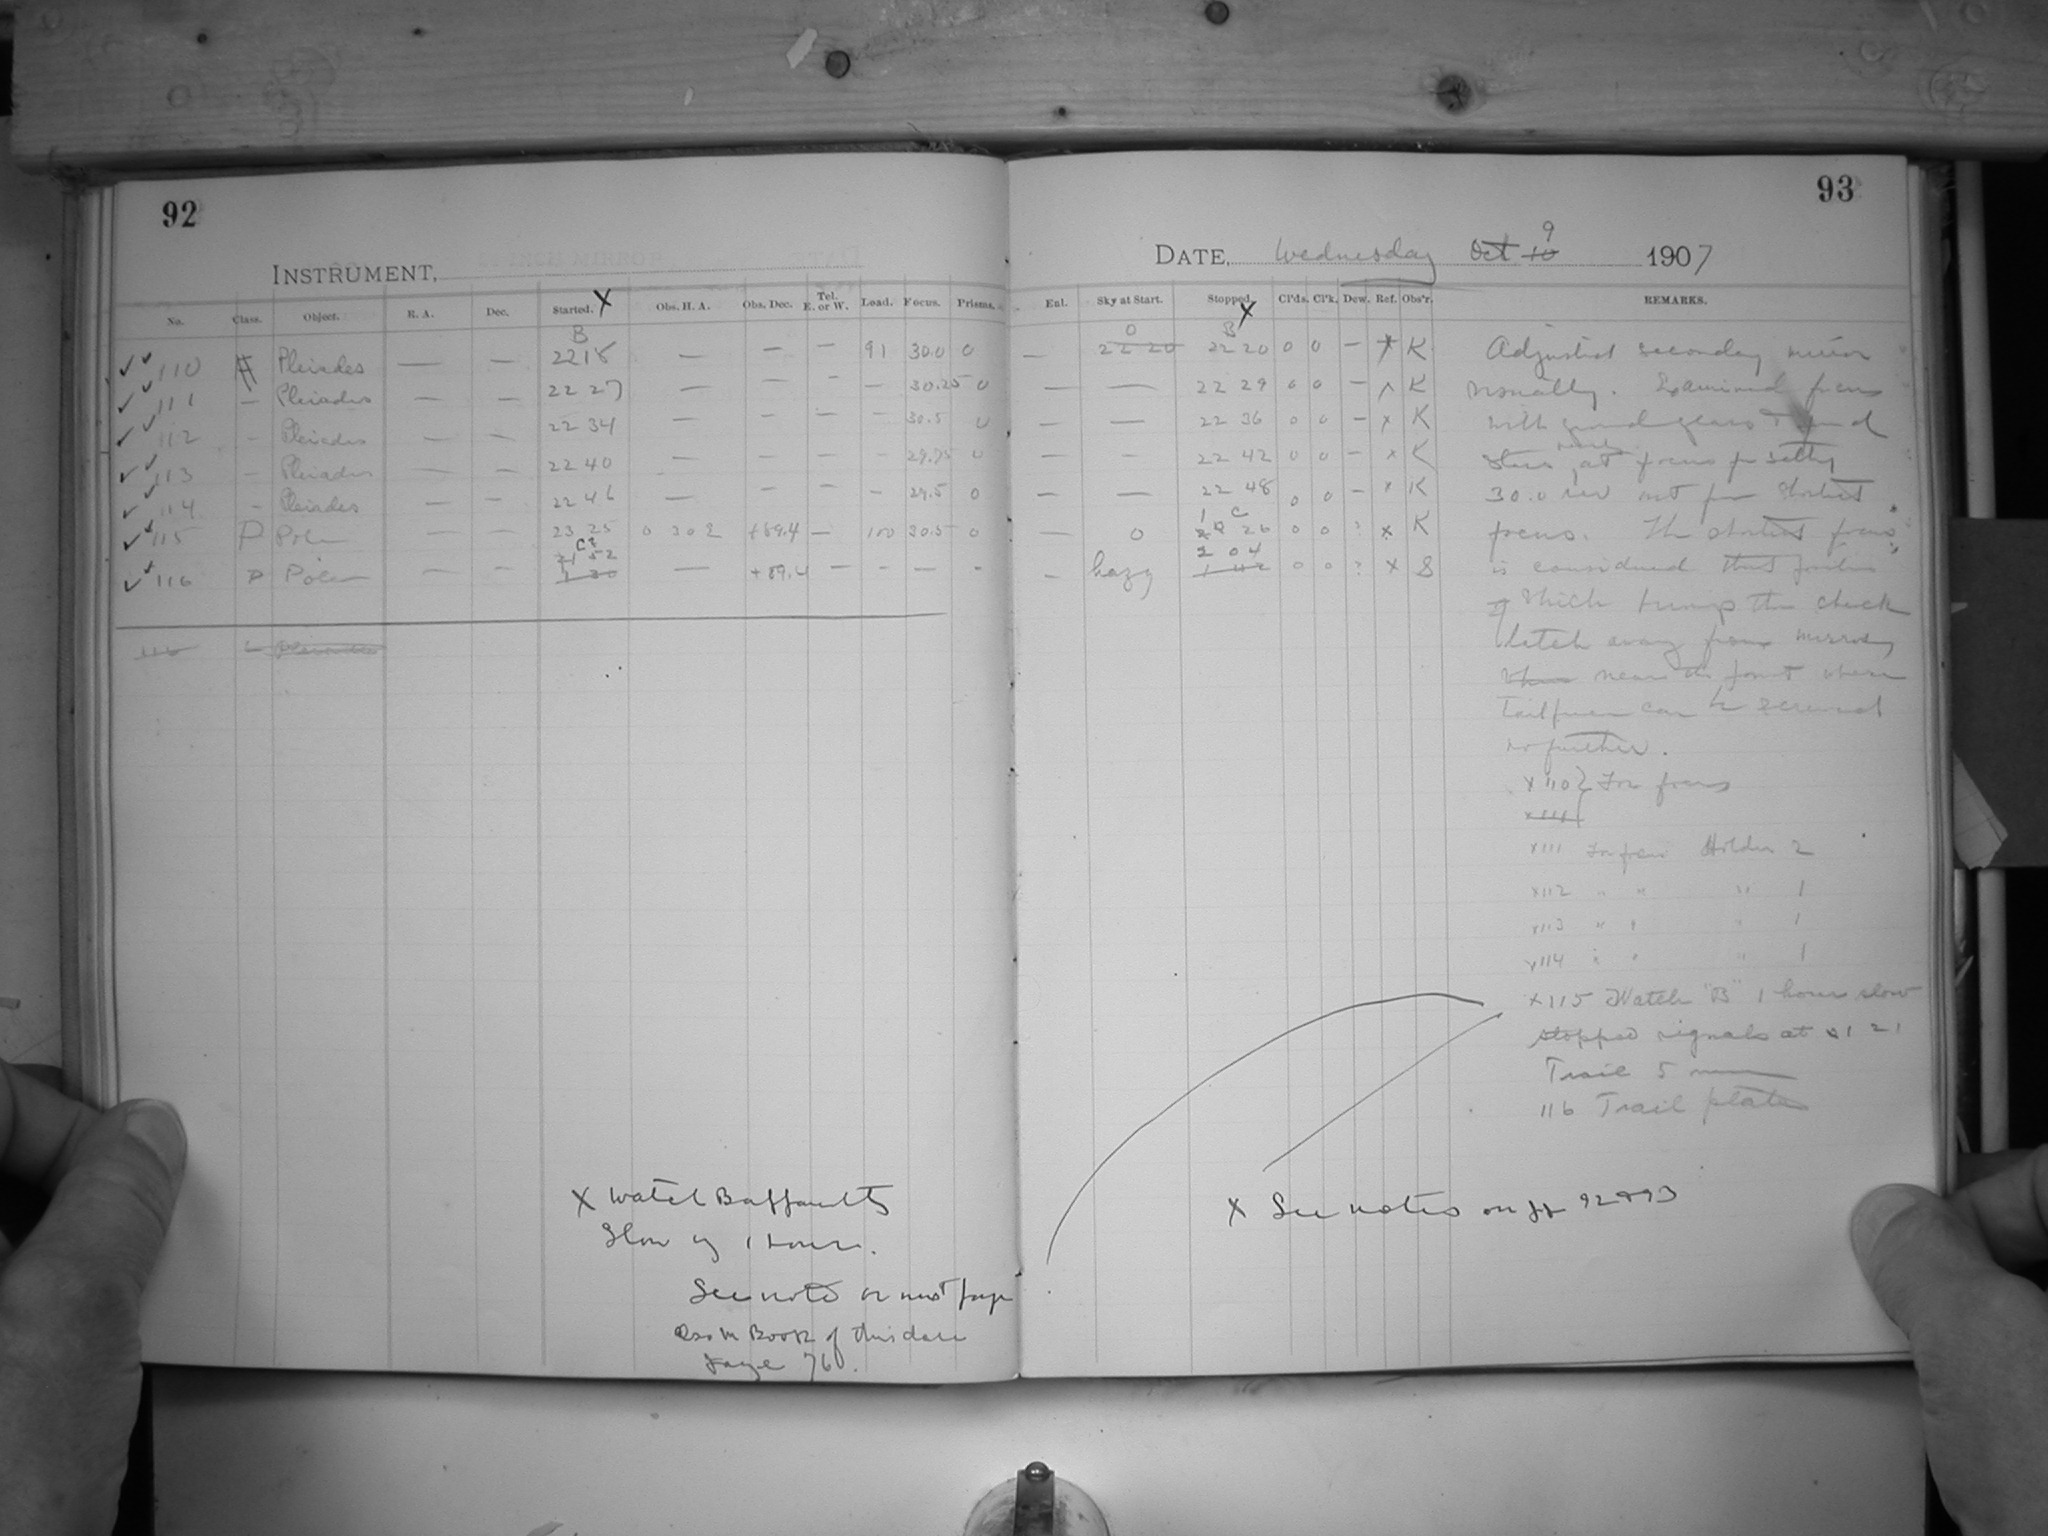 92
INSTRUMENT,
No. Class. Object. R. A. Dec. Started. X Obs. H. A. Obs. Dec. Tel. E. or W. Load. Focus. Prisms.
B
110 Pleiades — — 22 18 — — — 91 30.0 0
111 — Pleiades — — 22 27 — — — — 30.25 0
112 — Pleiades — — 22 34 — — — — 30.5 0
113 — Pleiades — — 22 40 — — — — 29.75 0
114 — Pleiades — — 22 46 — — — — 29.5 0
115 P Pole — — 23 25 0 302 +89.4 — 100 30.5 0
C? 
21 52
116 P Pole — — 1 30 — +89.4 — — — -
116 — Pleiades
X Watch B
Slow by 1 hour.
See note on next page
Book of this date
page 76.
93
DATE, Wednesday Oct 10 9 1907
Enl. Sky at Start. Stopped. X Cl'ds. Cl'k. Dew. Ref. Obs'r. REMARKS.
0 B
— 22 20 22 20 0 0 — x K
— — 22 29 0 0 — x K
— — 22 36 0 0 — x K
— — 22 42 0 0 — x K
— — 22 48 0 0 — x K
1 C
— 0 26 0 0 : x K
2 04
— hazy 0 0 : x S
Adjusted secondary mirror
visually. Examined focus
with ground glass & found
stars nearly at focus for setting
30.0 rev out from shortest
focus. The "shortest focus"
is considered that position
which brings the check
latch away from mirror
when near the point where
tailpiece can be screwed
no further.
x 110 } For focus
x 111
x 111 For focus Holder 2
x 112 " " " 1
x 113 " " " 1
x 114 " " " 1
x 115 Watch "B" 1 hour slow
stopped signals at 21 21
Trail 5 min
116 Trail plate
X See notes on pp 92 & 93